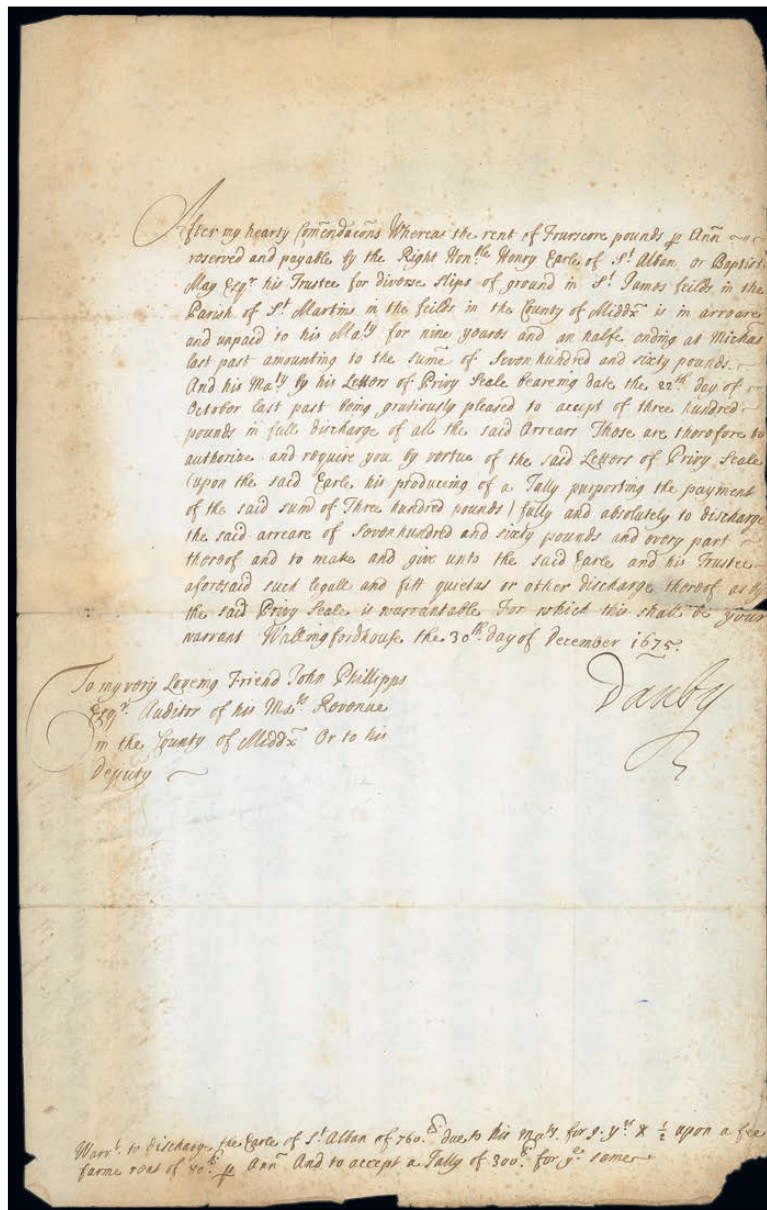 After my hearty Com̃endac̃ons Whereas the rent of Fourscore pounds ꝑ Ann̄
reserved and payable by the Right Hon.ble Henry Earle of S.t Alban or Baptist
May Esq.r his Trustee for diverse slips of ground in S.t James feilds in the
Parish of S.t Martins in the feilds in the County of Midd.x is in arreare
and unpaid to his Ma.ty for nine yeares and an halfe ending at Michas
last past amounting to the sum̃e of Seven hundred and sixty pounds
And his Ma.ty by his Letters of Privy Seale beareing date the 22.th day of
October last past being gratiously pleased to accept of three hundred
pounds in full discharge of all the said Arrears These are therefore to
authorize and require you by vertue of the said Letters of Privy Seale
(upon the said Earle his producing of a Tally purporting the payment
of the said sum of Three hundred pounds) fully and absolutely to discharge
the said arreare of Seven hundred and sixty pounds and every part
thereof and to make and give unto the said Earle and his Trustee
aforesaid such legall and fitt quietus or other discharge thereof as by
the said Privy Seale is warrantable For which this shall be your
warrant Wallingfordhouse the 30.th day of December 1675.
Danby
To my very Loveing Friend John Phillipps
Esq.r Auditor of his Ma.ts Revenue
in the County of Midd.x Or to his
Deputy
Warr.t to discharge the Earle of S.t Alban of 760.li due to his Ma.ty for 9. y.rs & ½ upon a fee
farme rent of 80.li ꝑ Ann̄ And to accept a Tally of 300.li for y.e same